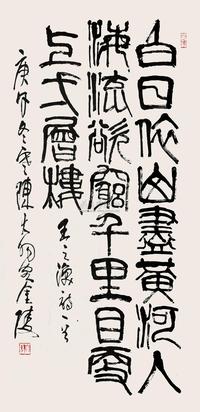 白日依山盡黃河入
海流欲窮千里目更
上弌層樓
王之渙詩一首
庚午冬寒陳大羽客金陵